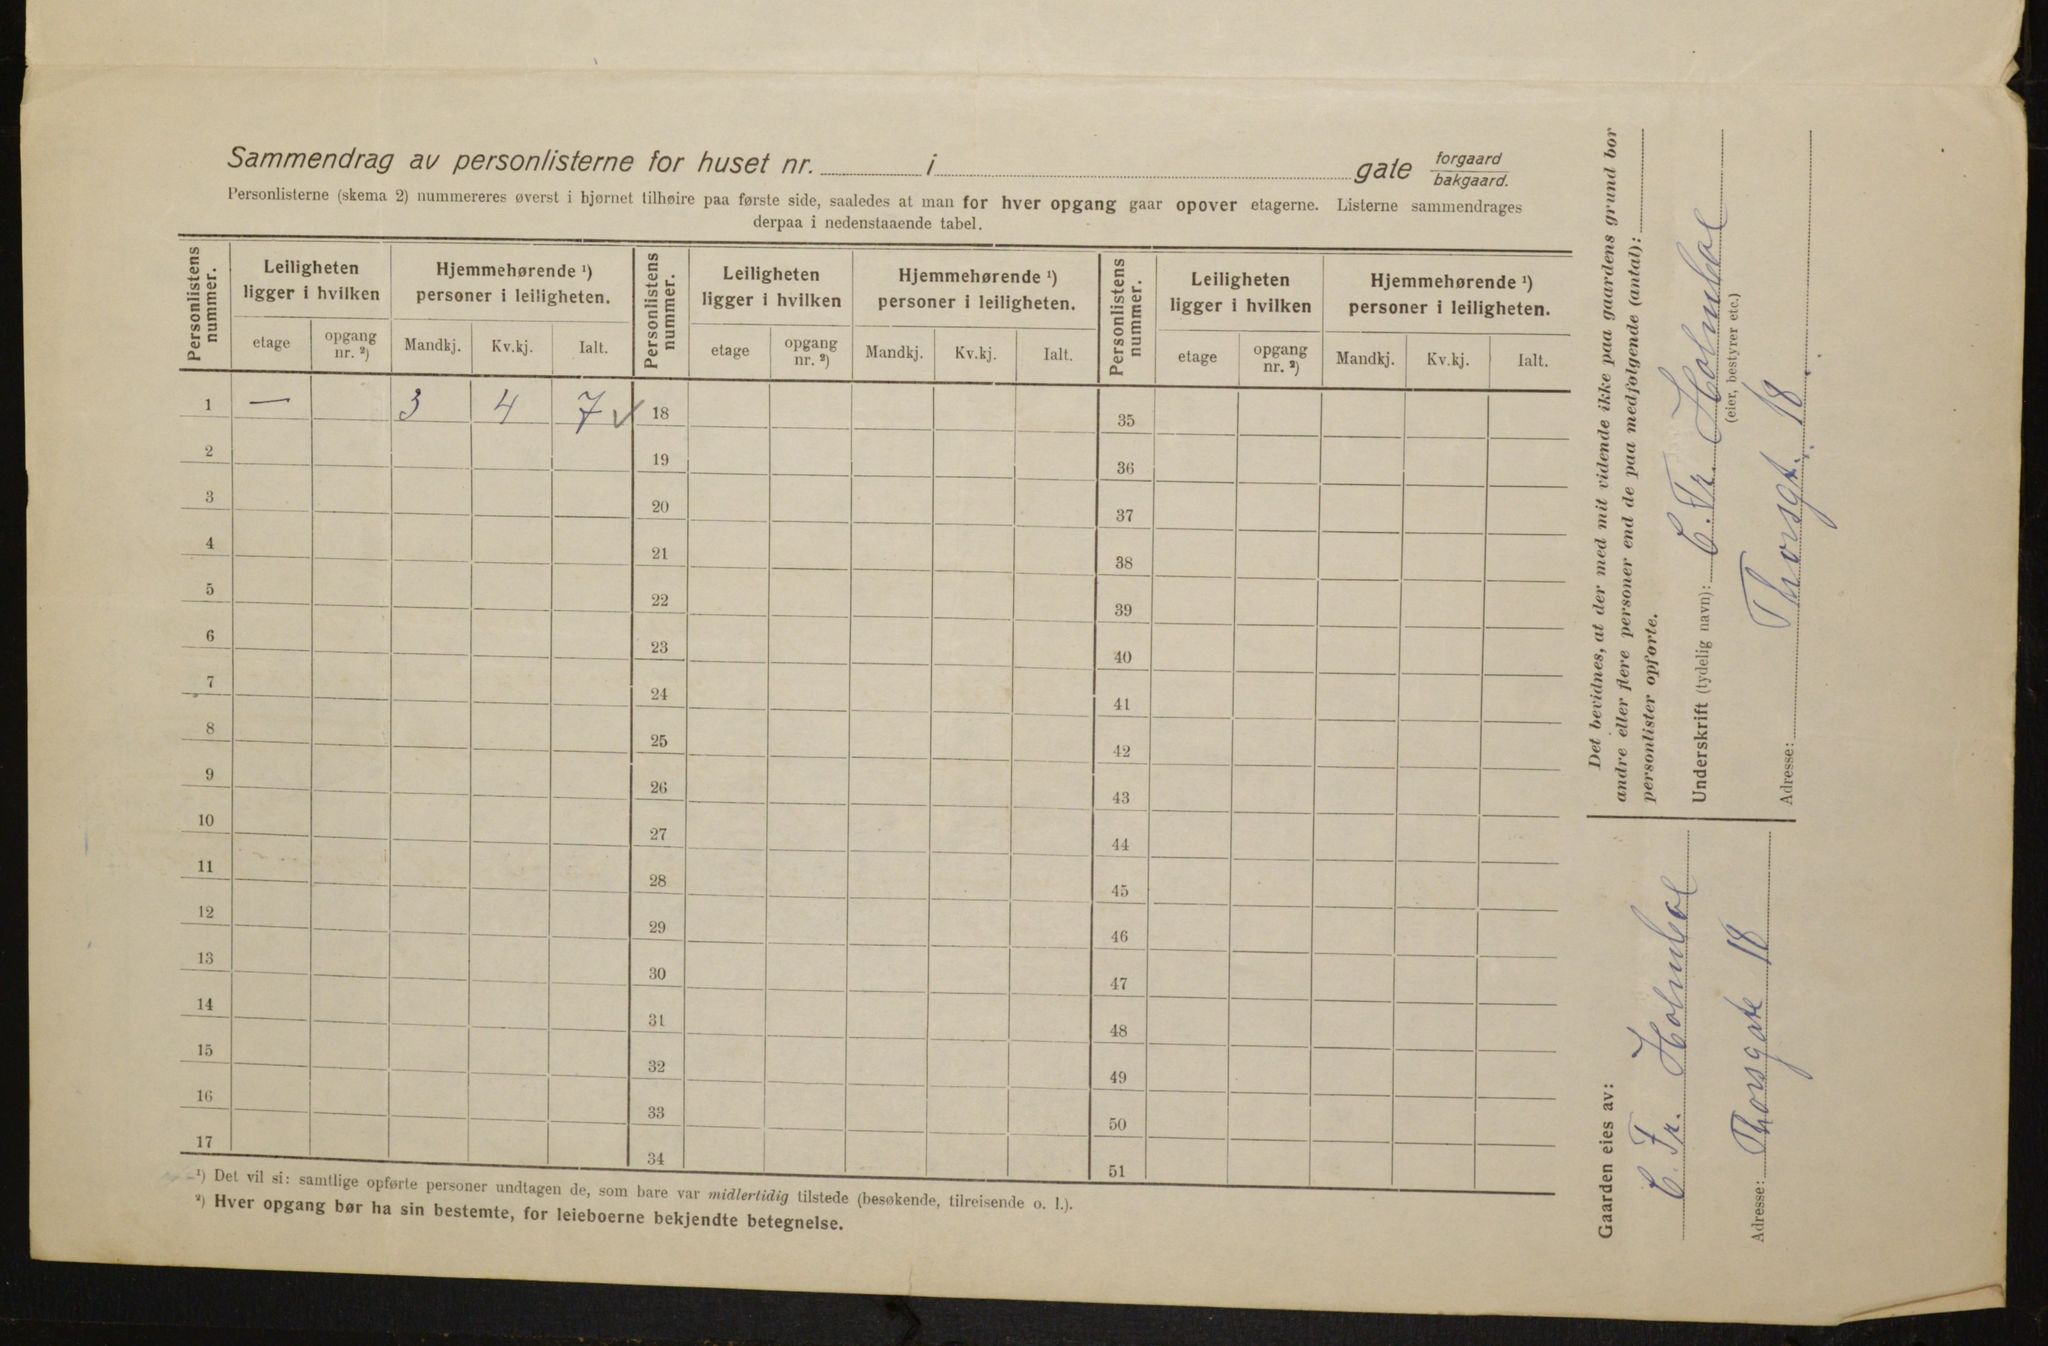 Sammendrag av personlisterne for huset nr. i gate forgaard
bakgaard.
Personlisterne (skema 2) nummereres øverst i hjørnet tilhøire paa første side, saaledes at man for hver opgang gaar opover etagerne. Listerne sammendrages
derpaa i nedenstaaende tabel.
Personlistens nummer. Leiligheten ligger i hvilken Hjemmehørende ¹) personer i leiligheten. Personlistens nummer. Leiligheten ligger i hvilken Hjemmehørende ¹) personer i leiligheten. Personlistens nummer. Leiligheten ligger i hvilken Hjemmehørende ¹) personer i leiligheten.
etage opgang nr. ²) Mandkj. Kv.kj. Ialt. etage opgang nr. ²) Mandkj. Kv.kj. Ialt. etage opgang nr. ²) Mandkj. Kv.kj. Ialt.
1 — 3 4 7 ✓ 18 35
2 19 36
3 20 37
4 21 38
5 22 39
6 23 40
7 24 41
8 25 42
9 26 43
10 27 44
11 28 45
12 29 46
13 30 47
14 31 48
15 32 49
16 33 50
17 34 51
¹) Det vil si: samtlige opførte personer undtagen de, som bare var midlertidig tilstede (besøkende, tilreisende o. l.).
²) Hver opgang bør ha sin bestemte, for leieboerne bekjendte betegnelse.
Det bevidnes, at der med mit vidende ikke paa gaardens grund bor
andre eller flere personer end de paa medfølgende (antal):
personlister opførte.
Underskrift (tydelig navn): C. Fr. Holmboe
(eier, bestyrer etc.)
Adresse: Thorsgt. 18.
Gaarden eies av:
C. Fr. Holmboe
Adresse: Thorsgate 18